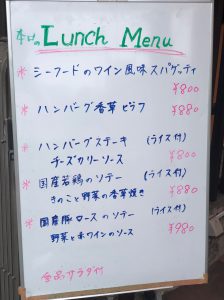 本日の Lunch Menu
* シーフードのワイン風味スパゲッティ
¥800
* ハンバーグ香草ピラフ
¥880
* ハンバーグステーキ (ライス付)
チーズカリーソース ¥800
* 国産若鶏のソテー (ライス付)
きのこと野菜の香草焼き ¥880
* 国産豚ロースのソテー (ライス付)
野菜と赤ワインのソース ¥980
全品サラダ付